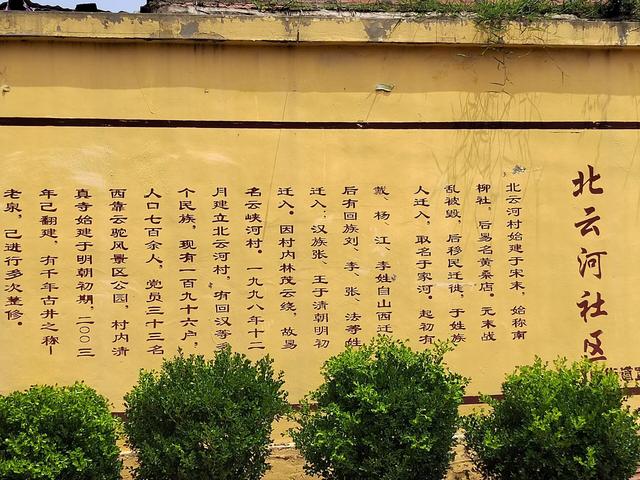 北云河社区
北云河村始建于宋末，始称南
柳社，后易名黄桑店。元末战
乱被毁，后移民迁徙，于姓族
人迁入，取名于家河。起初有
戴、杨、江、李姓自山西迁
后有回族刘、李、张、法等姓
迁入；汉族张、王于清朝明初
迁入。因村内林茂云绕，故易
名云峡河村。一九九八年十二
月建立北云河村，有回汉等多
个民族，现有一百九十六户，
人口七百余人，党员三十三名
西靠云驼风景区公园，村内清
真寺始建于明朝初期，二〇〇三
年已翻建，有千年古井之称—
老泉，已进行多次整修。